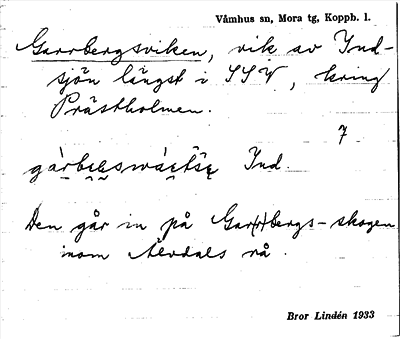 Våmhus sn, Mora tg, Koppb. l.
Garrbergsviken, vik av Ind-
sjön längst i SSV, kring
Prästholmen.
7
Ind
Den går in på Gar(r)bergs-skogen
inom Älvdals rå.
Bror Lindén 1933